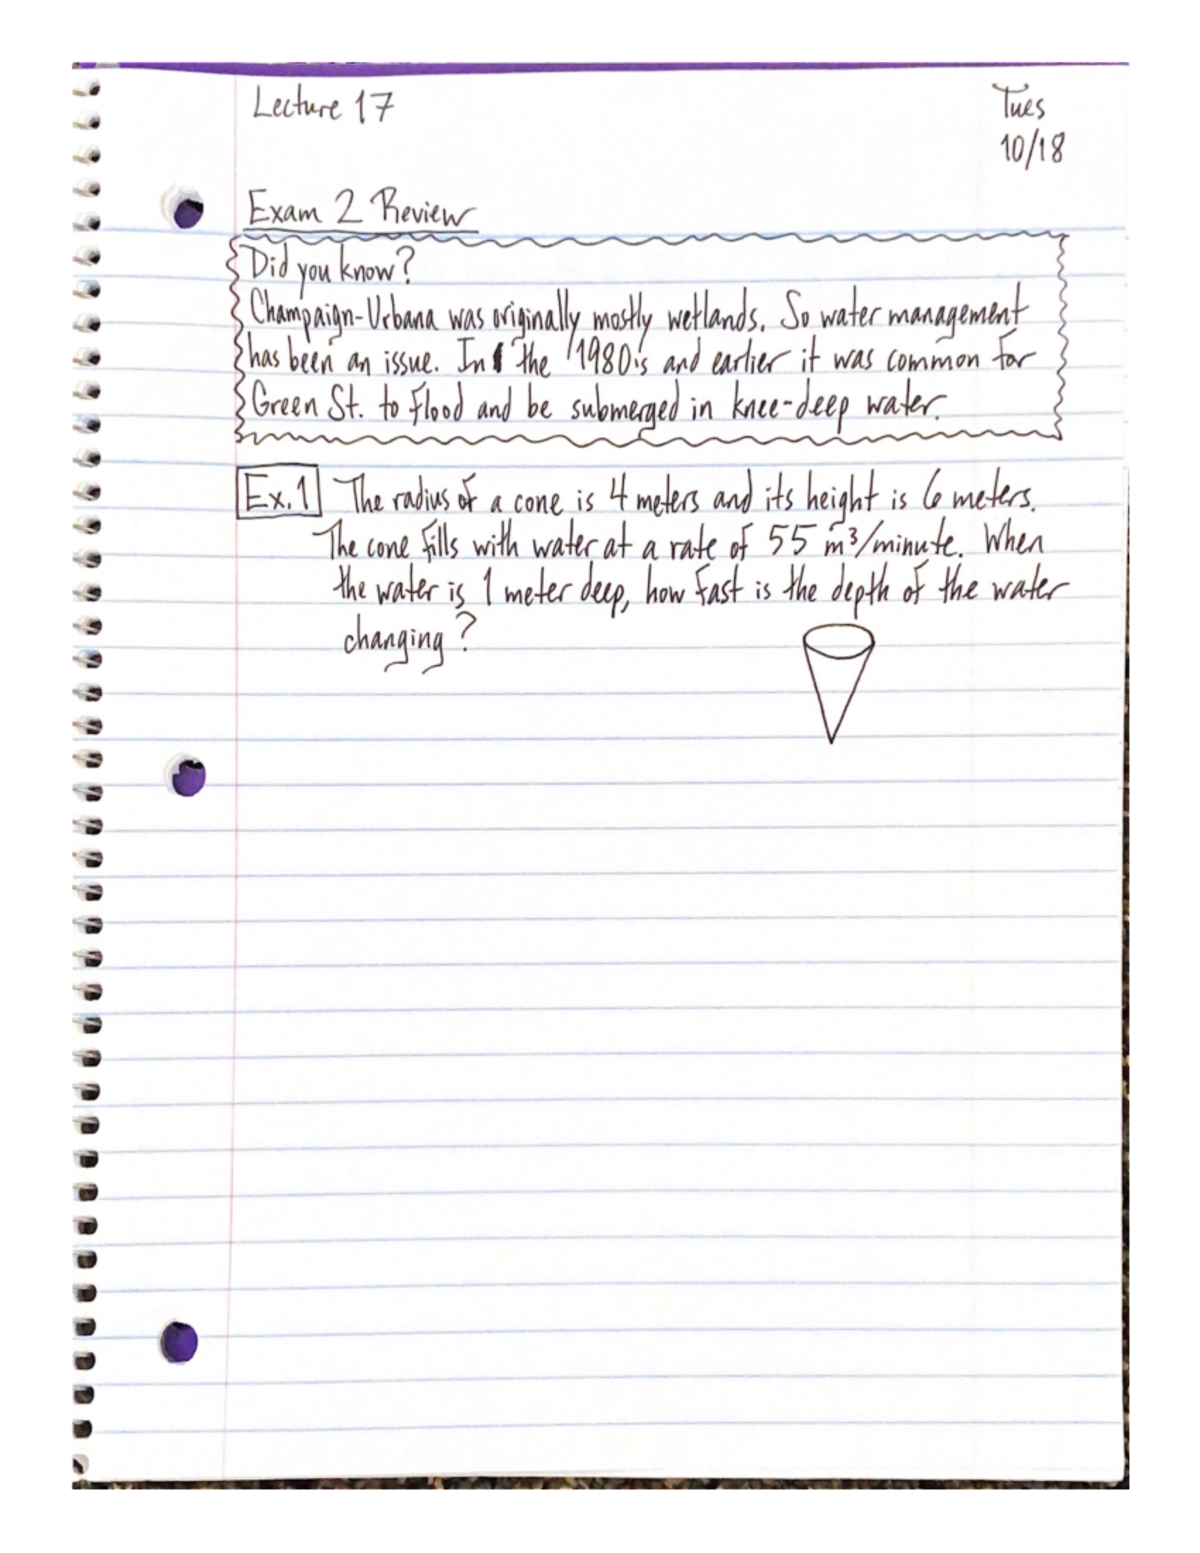 Lecture 17
Tues
10/18
Exam 2 Review
Did you know?
Champaign-Urbana was originally mostly wetlands. So water management
has been an issue. In the 1980's and earlier it was common for
Green St. to flood and be submerged in knee-deep water.
Ex. 1 The radius of a cone is 4 meters and its height is 6 meters.
The cone fills with water at a rate of 55 m³/minute. When
the water is 1 meter deep, how fast is the depth of the water
changing?